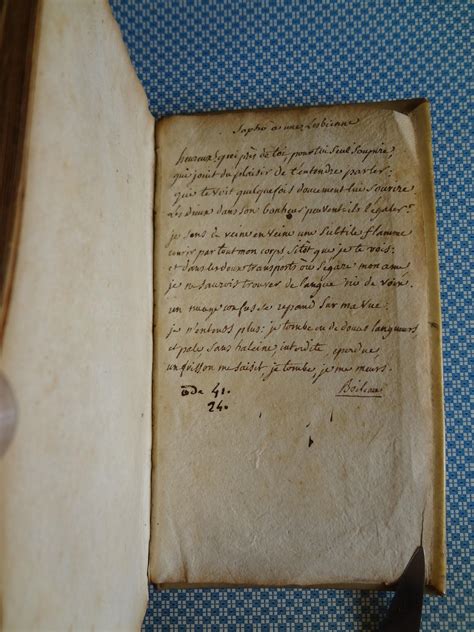 Sapho à une Lesbienne
heureux! qui près de toi, pour toi seul soupire,
qui jouit du plaisir de t'entendre parler:
qui te voit quelquefois doucement lui sourire
les dieux dans son bonheur peuvent-ils l'égaler?
je sens de veine en veine une subtile flamme
courir par tout mon corps sitôt que je te vois:
et dans les doux transports où s'égare mon ame
je ne saurois trouver de langue ni de voix.
un nuage confus se repand sur ma vue.
je n'entends plus: je tombe en de douces langueurs,
et pale sans haleine, interdite, eperdue,
un frisson me saisit, je tombe, je me meurs.
Boileau
ode 41.
24.